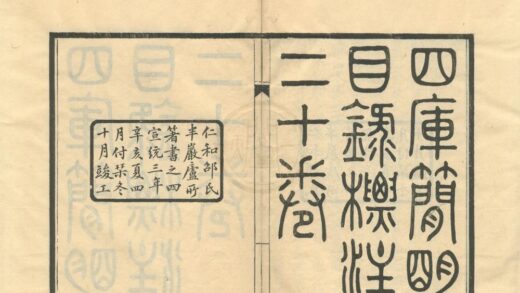 四庫簡明
目錄標注
二十卷
仁和邵氏
半巖廬所
箸書之四
宣統三年
辛亥夏四
月付琹冬
十月竣工